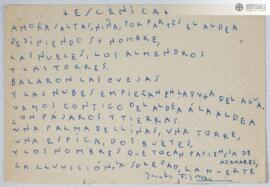 + ESCÉNICA +
AHORA SALTAS, NIÑA, POR PARTES EL ALDEA
DEFINIENDO SU NOMBRE,
LOS ALMENDROS
Y LAS TORRES.
BALARON LAS OVEJAS
Y LAS NUBES EMPIEZAN LA FUGA DEL AGUA.
VAMOS CONTIGO DEL ALDEA A LA ALDEA
CON PAJAROS Y TIERRAS.
UNA PALMA DE CLINAS, UNA TORRE,
UNA ESPIGA, DOS BUEYES,
Y LOS NOMBRES QUE TOCAN PACIENCIA DE
AZAHARES,
LA LLUVICIÓN, LA SOLEDAD, LA MUERTE